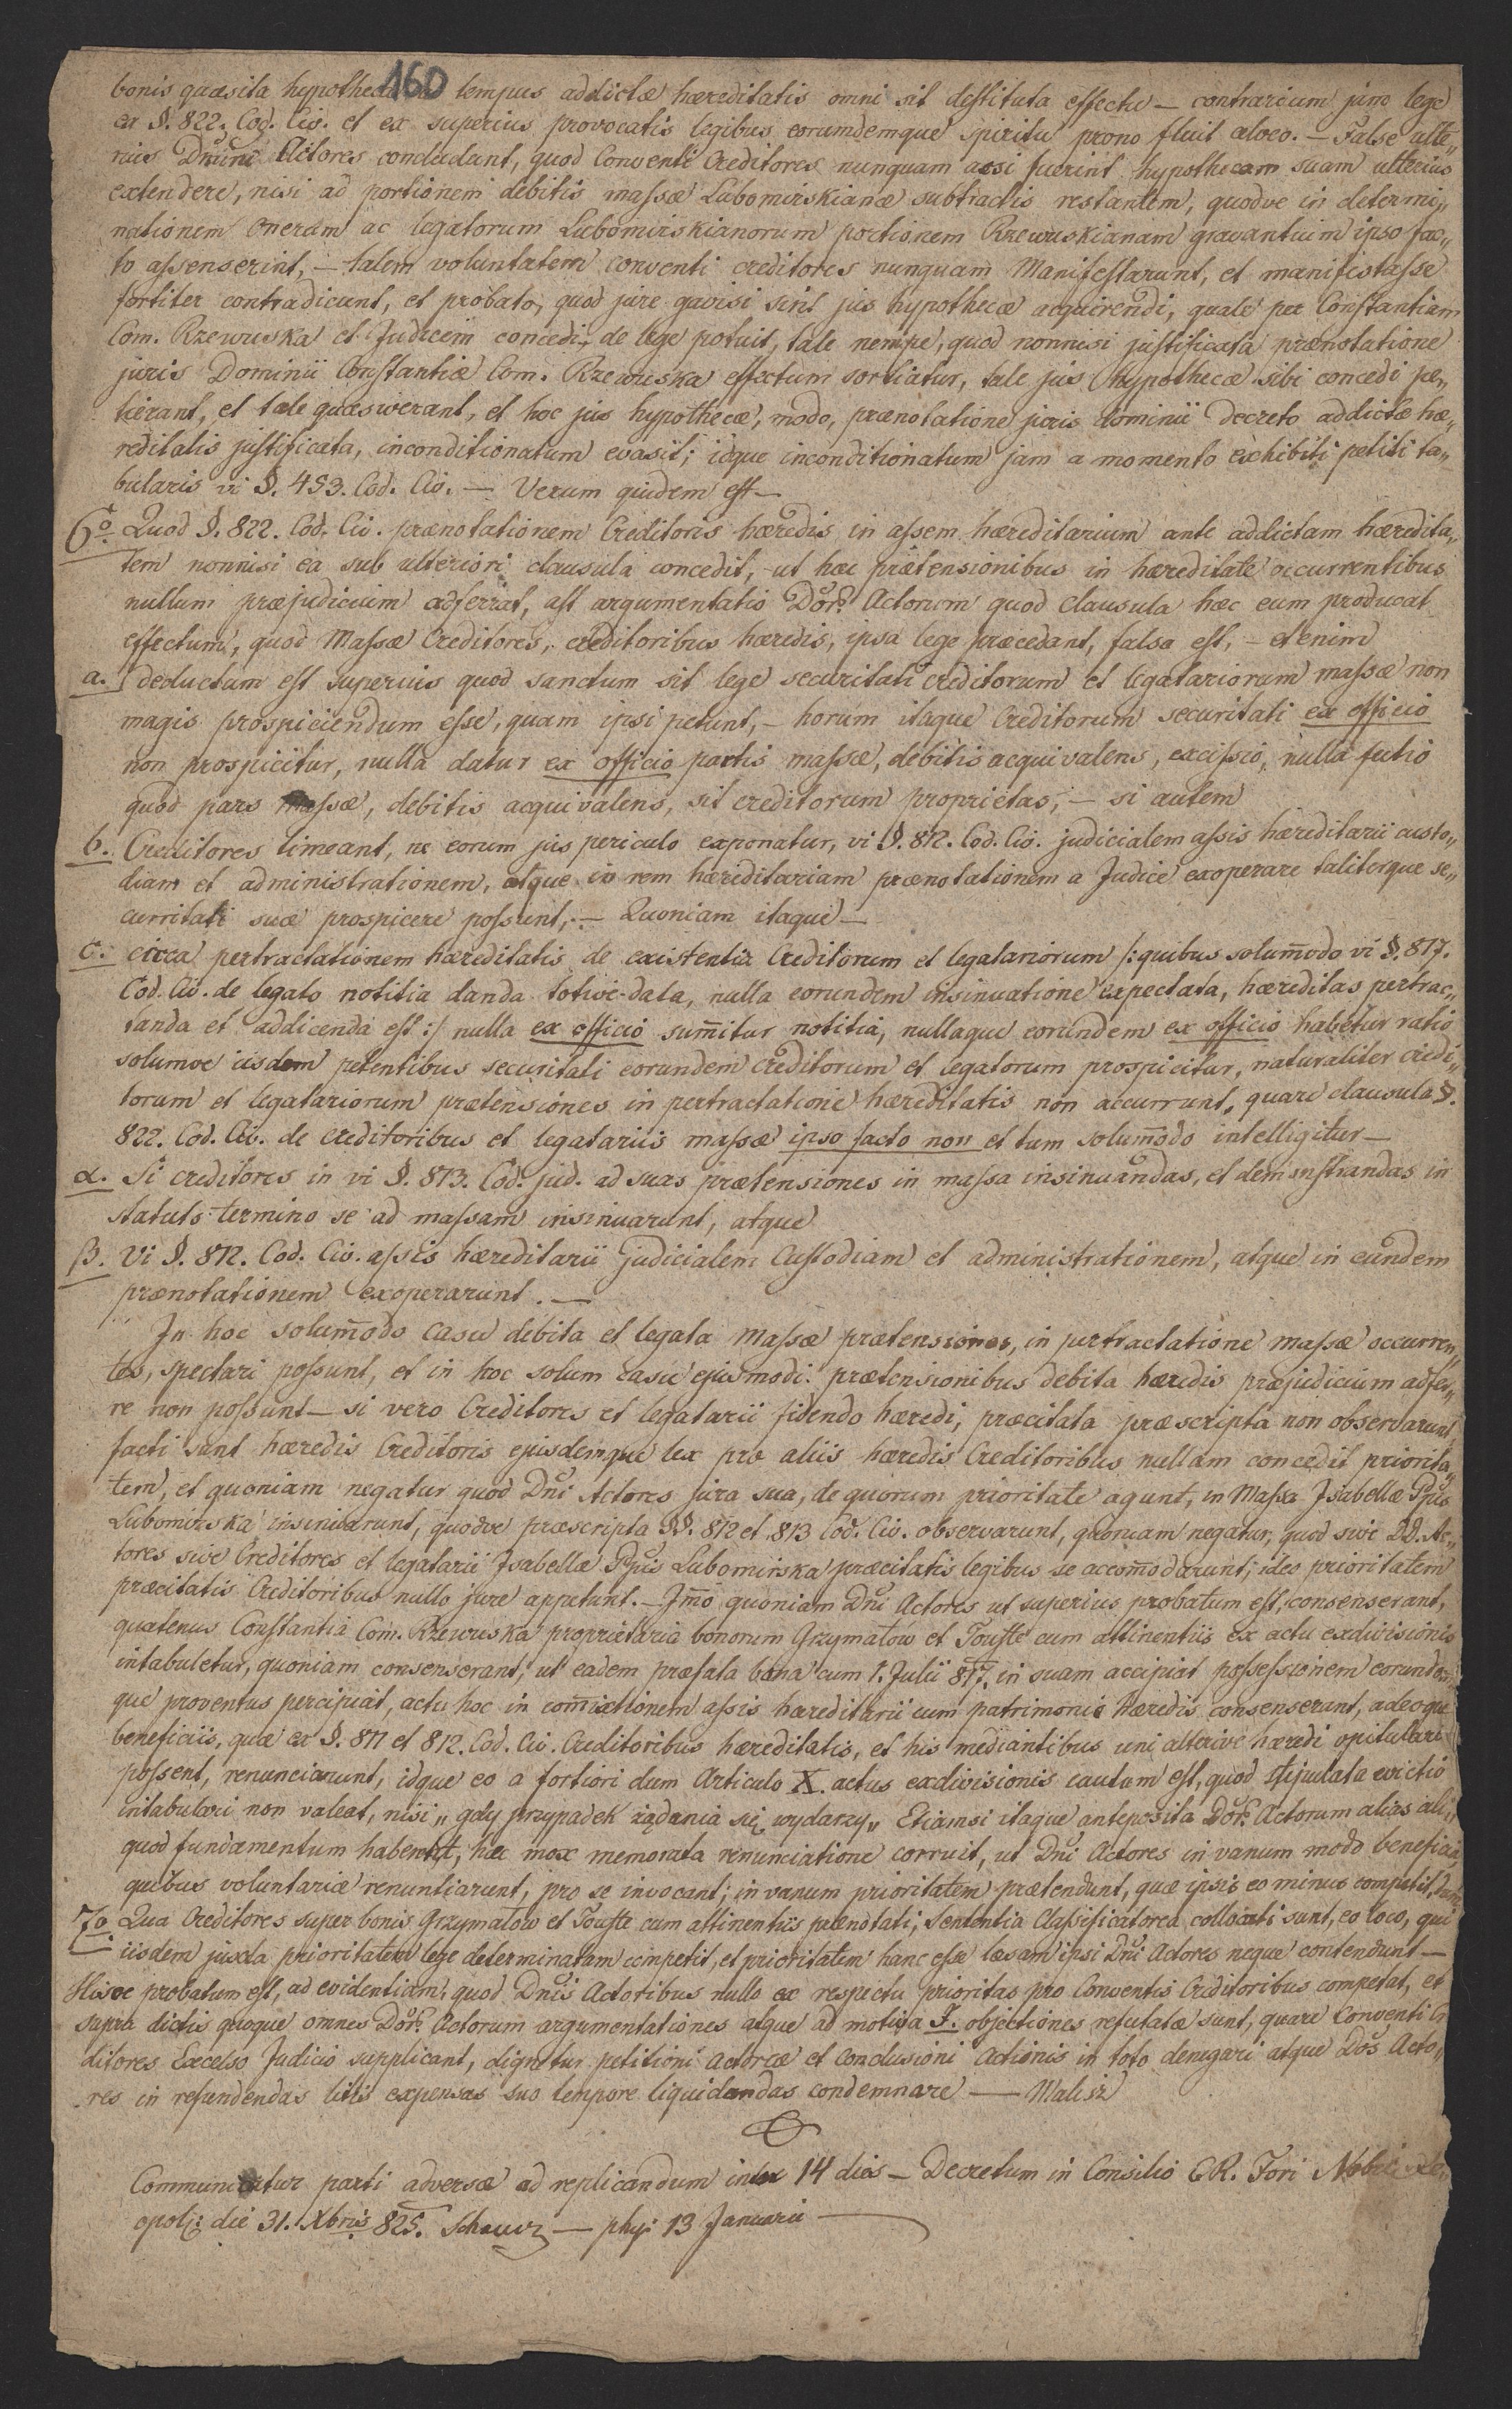 160
bonis quæsita hypotheca tempus addictæ hæreditatis omni sit destituta effectu — contrarium jam lege
ex §. 822. Cod. Civ. et ex superius provocatis legibus eorumdemque spiritu prono fluit alveo. — False ulte„
rius Dnuni Actores concludunt, quod Conventi Creditores nunquam ausi fuerint hypothecam suam ulterius
extendere, nisi ad portionem debitis massæ Lubomirskianæ subtractis restantem, quodve in determi„
nationem onerum ac legatorum Lubomirskianorum portionem Rzewuskianam gravantium ipso fac„
to assenserint, — talem voluntatem conventi creditores nunquam Manifestarunt, et manifestasse
fortiter contradicunt, et probato, quod jure gavisi sint jus hypothecæ acquirendi, quale per Constantiam
Com. Rzewuska et Judicem concedi, de lege potuit, tale nempe, quod nonnisi justificata prænotatione
juris Dominii Constantiæ Com. Rzewuska effectum sortiatur, tale jus hypothecæ sibi concedi pe„
tierant, et tale quæsiverant, et hoc jus hypothecæ, modo, prænotatione juris dominii Decreto addictæ hæ„
reditatis justificata, inconditionatum evasit; idque inconditionatum jam a momento exhibiti petiti ta„
bularis vi §. 453. Cod. Civ. — Verum quidem est —
6o. Quod §. 822. Cod. Civ. prænotationem Creditoris hæredis in assem hæreditarium ante addictam hæredita„
tem nonnisi ea sub ulteriori clausula concedit, ut hæc prætensionibus in hæreditate occurrentibus
nullum præjudicium adferrat, ast argumentatio Dor. Actorum quod Clausula hæc eum producat
effectum, quod Massæ Creditores, creditoribus hæredis, ipsa lege præcedant, falsa est, — etenim
a. deductum est superius quod sanctum sit lege securitati creditorum et legatariorum massæ non
magis prospiciendum esse, quam ipsi petunt, — horum itaque Creditorum securitati ex officio
non prospicitur, nulla datur ex officio partis massæ, debitis acquivalens, excissio, nulla fictio
quod pars massæ, debitis acquivalens, sit creditorum proprietas, — si autem
b. Creditores timeant, ne eorum jus periculo exponatur, vi §. 812. Cod. Civ. judicialem assis hæreditarii custo„
diam et administrationem, atque in rem hæreditariam prænotationem a Judice exoperare taliterque se„
curritati suæ prospicere possunt, — Quoniam itaque —
c. circa pertractationem hæreditatis de existentia Creditorum et legatariorum /: quibus solum̄odo vi §. 817.
Cod. Civ. de legato notitia danda totive data, nulla eorundem insinuatione expectata, hæreditas pertrac„
tanda et addicenda est :/ nulla ex officio sum̄itur notitia, nullaque eorundem ex officio habetur ratio
solumve iisdem petentibus securitati eorundem Creditorum et legatorum prospicitur, naturaliter credi„
torum et legatariorum prætensiones in pertractatione hæreditatis non accurrunt, quare clausula §.
822. Cod. Civ. de creditoribus et legatariis massæ ipso facto non et tum solum̄odo intelligitur —
α. Si creditores in vi §. 813. Cod. jud. ad suas prætensiones in massa insinuandas, et demonstrandas in
statuto termino se ad massam insinuarunt, atque
β. Vi §. 812. Cod. Civ. assis hæreditarii judicialem Custodiam et administrationem, atque in eundem
prænotationem exoperarunt. —
In hoc solum̄odo casu debita et legata Massæ prætensiones, in pertractatione massæ occurren„
tes, spectari possunt, et in hoc solum casu ejusmodi prætensionibus debita hæredis præjudicium adfer„
re non possunt — si vero Creditores et legatarii fidendo hæredi, præcitata præscripta non observarunt,
facti sunt hæredis Creditoris ejusdemque lex pro aliis hæredis Creditoribus nullam concedit priorita„
tem, et quoniam negatur quod Dni Actores jura sua, de quorum prioritate agunt, in Massa Isabellæ Ppis
Lubomirska insinuarunt, quodve præscripta §§. 812 et 813 Cod. Civ. observarunt, quoniam negatur, quod sive DD. Ac„
tores sive Creditores et legatarii Isabellæ Ppis Lubomirska præcitatis legibus se accom̄odarunt; ideo prioritatem
præcitatis Creditoribus nullo jure appetunt. — Im̄o quoniam Dni Actores ut superius probatum est, consenserant,
quatenus Constantia Com. Rzewuska proprietaria bonorum Grzymałow et Touste cum attinentiis ex actu exdivisionis
intabuletur, quoniam consenserant, ut eadem præfata bona cum 1. Julii 817. in suam accipiat possessionem eorundem
que proventus percipiat, actu hoc in com̄ixtionem assis hæreditarii cum patrimonio hæredis consenserant, adeoque
beneficiis, quæ ex §. 811 et 812. Cod. Civ. Creditoribus hæreditatis, et his mediantibus uni alterive hæredi opitulari
possent, renunciarunt, idque eo a fortiori dum Articulo X. actus exdivisionis cautum est, quod stipulata evictio
intabulari non valeat, nisi „ gdy przypadek żądania się wydarzy „ Etiamsi itaque anteposita Dor. Actorum alias ali„
quod fundamentum haberent, hæc mox memorata renunciatione corruit, ut Dni Actores in vanum modo beneficia,
quibus voluntarie renuntiarunt, pro se invocant; in vanum prioritatem prætendunt, quæ ipsis eo minus competit, dum
7o. Qua Creditores super bonis Grzymałow et Touste cum attinentiis prænotati, Sententia Classificatorea collocati sunt, eo loco, qui
iisdem juxta prioritatem lege determinatam competit, et prioritatem hanc esse læsam ipsi Dni Actores neque contendunt —
Hisce probatum est, ad evidentiam, quod Dnis Actoribus nullo ex respectu prioritas pro Conventis Creditoribus competat, et
supra dictis quoque omnes Dor. Actorum argumentationes atque ad motiva F. objectiones refutatæ sunt, quare Conventi Cr
ditores Excelso Judicio supplicant, dignetur petitioni Actoreæ et Conclusioni Actionis in toto denegari atque Dos Acto„
res in refundendas litis expensas suo tempore liquidandas condemnare — Malisz
Communicatur parti adversæ ad replicandum inter 14 dies — Decretum in Consilio C.R. Fori Nobil Le„
opol: die 31. Xbris 825. — phy: 13 Januarii —